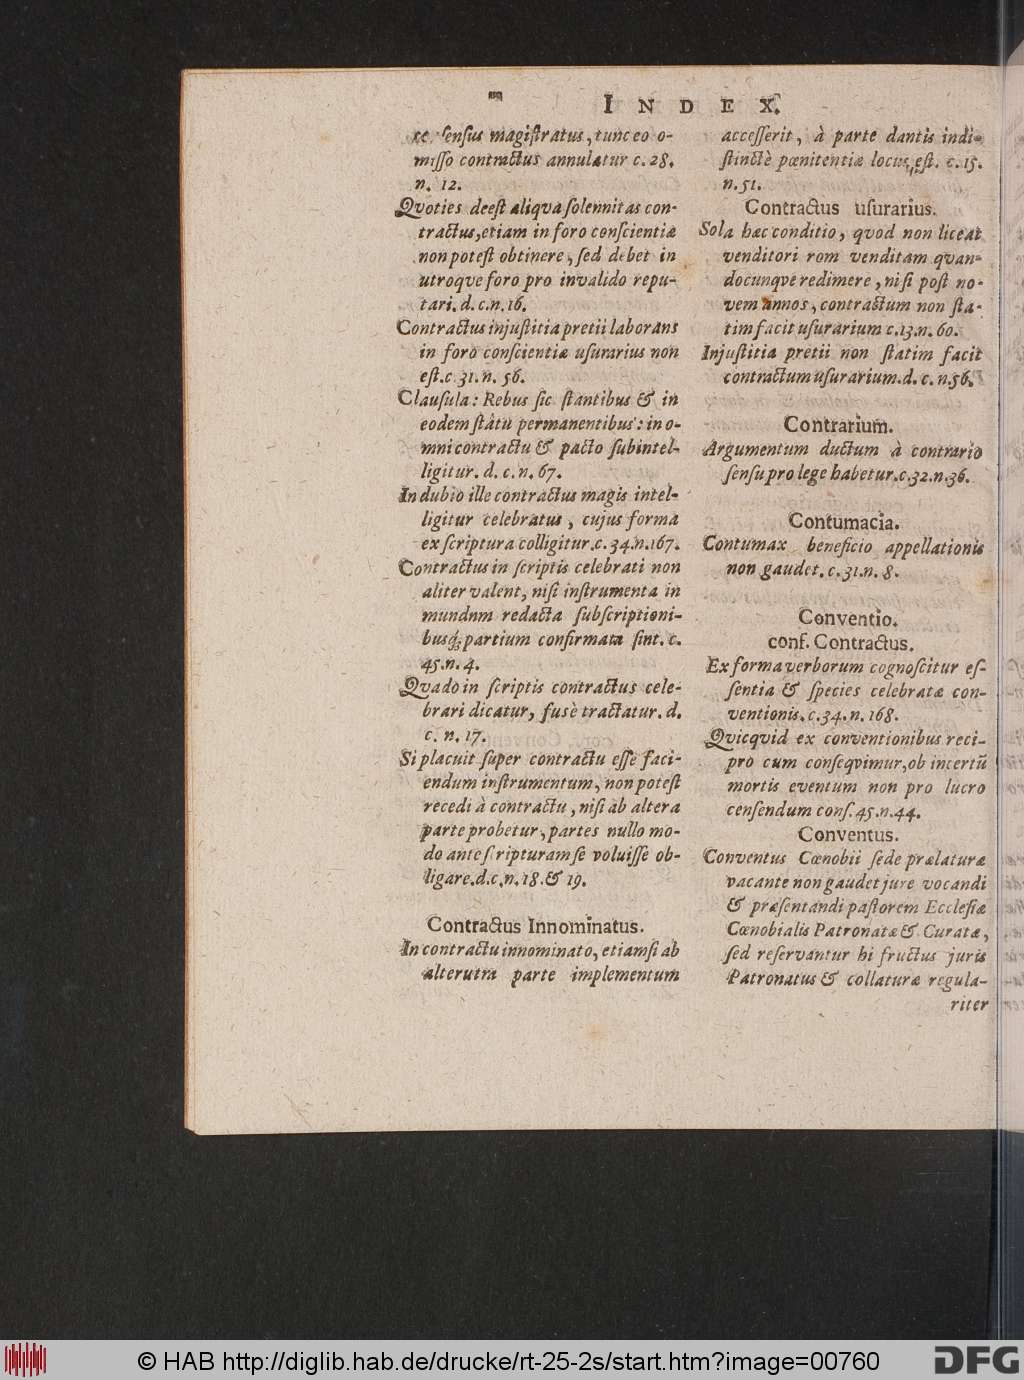 INDEX.
sensus magistratus, tunc eo o-
misso contractus annulatur c. 28.
n. 12.
Qvoties deest aliqva solennitas con-
tractus, etiam in foro conscientiæ
non potest obtinere, sed debet in
utroqve foro pro invalido repu-
tari. d. c. n. 16.
Contractus injustitia pretii laborans
in foro conscientiæ usurarius non
est. c 31. n. 56.
Clausula: Rebus sic stantibus & in
eodem statu permanentibus: in o-
mni contractu & pacto subintel-
ligitur. d. c. n. 67.
In dubio ille contractus magis intel-
ligitur celebratus, cujus forma
ex scriptura colligitur. c. 34. n. 167.
Contractus in scriptis celebrati non
aliter valent, nisi instrumenta in
mundnm redacta subscriptioni-
busq́; partium confirmata sint. c.
45. n. 4.
Qvado in scriptis contractus cele-
brari dicatur, fusè tractatur. d.
c. n. 17.
Si placuit super contractu esse faci-
endum instrumentum, non potest
recedi à contractu, nisi ab altera
parte probetur, partes nullo mo-
do ante scripturam se voluisse ob-
ligare. d. c. n. 18. & 19.
Contractus Innominatus.
In contractu innominato, etiamsi ab
alterutra parte implementum
accesserit, à parte dantis indi-
stinctè pœnitentiæ locus est. c. 15.
n. 51.
Contractus usurarius.
Sola hæc conditio, qvod non liceat
venditori rem venditam qvan-
docunqve redimere, nisi post no-
vem annos, contractum non sta-
tim facit usurarium c. 13. n. 60.
Injustitia pretii non statim facit
contractum usurarium. d. c. n. 56.
Contrarium.
Argumentum ductum à contrario
sensu pro lege habetur. c. 32. n. 36.
Contumacia.
Contumax beneficio appellationis
non gaudet. c. 31. n. 8.
Conventio.
conf. Contractus.
Ex forma verborum cognoscitur es-
sentia & species celebratæ con-
ventionis. c. 34. n. 168.
Qvicqvid ex conventionibus reci-
pro cum conseqvimur, ob incertū
mortis eventum non pro lucro
censendum cons. 45. n. 44.
Conventus.
Conventus Cœnobii sede prælaturæ
vacante non gaudet jure vocandi
& præsentandi pastorem Ecclesiæ
Cœnobialis Patronatæ & Curatæ,
sed reservantur hi fructus juris
Patronatus & collaturæ regula-
riter
© HAB http://diglib.hab.de/drucke/rt-25-2s/start.htm?image=00760
DFG